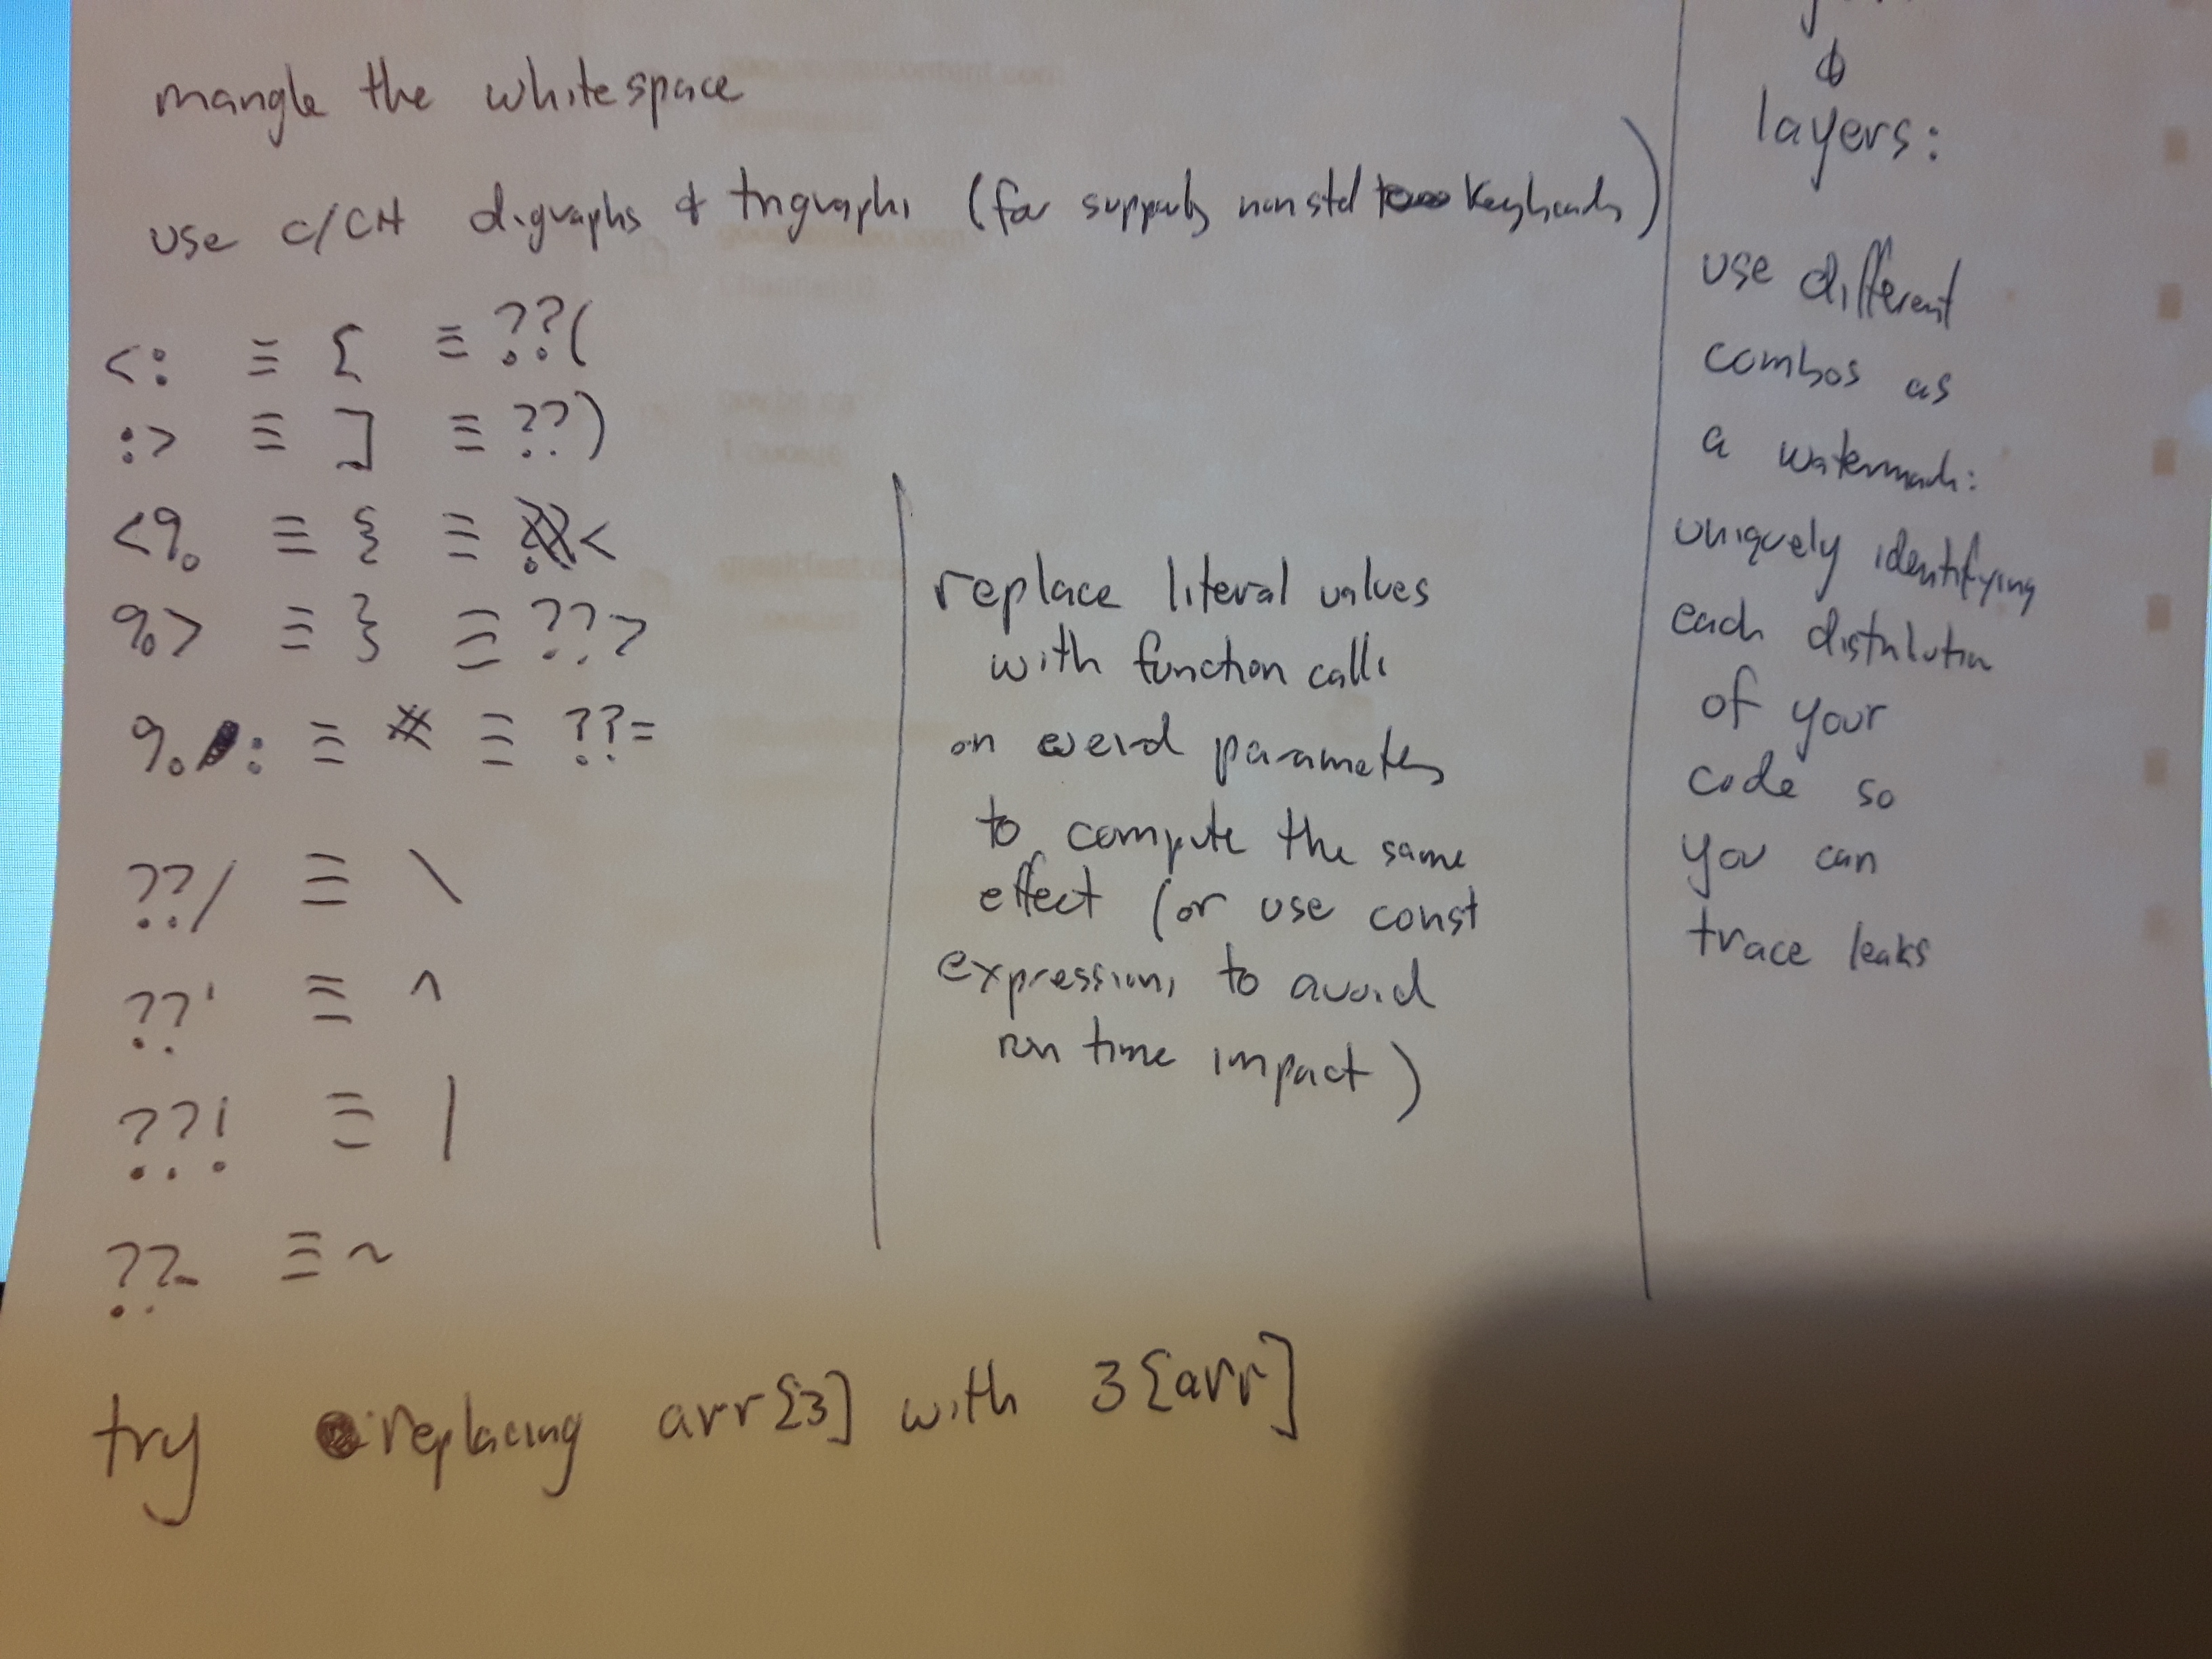 mangle the whitespace
use C/C++ digraphs & trigraphs (for supporting nonstd keyboards)
<: ≡ [ ≡ ??(
:> ≡ ] ≡ ??)
<% ≡ { ≡ ??<
%> ≡ } ≡ ??>
%: ≡ # ≡ ??=
??/ ≡ \
??' ≡ ^
??! ≡ |
??- ≡ ~
try replacing arr[3] with 3[arr]
replace literal values
with function calls
on weird parameters
to compute the same
effect (or use const
expressions to avoid
run time impact)
layers:
use different
combos as
a watermark:
uniquely identifying
each distribution
of your
code so
you can
trace leaks